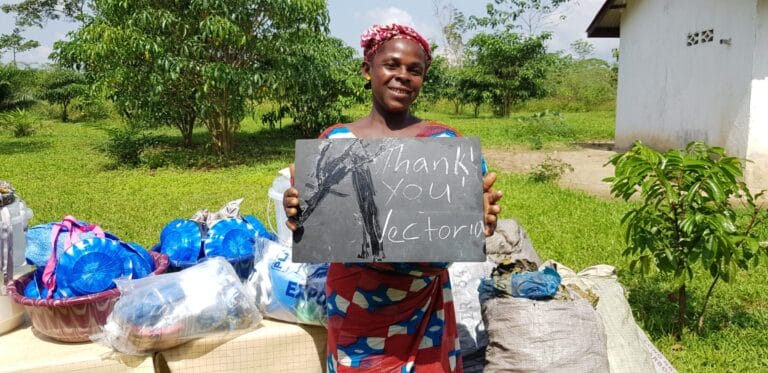 Thank!
You!
Vectoria
EXPO